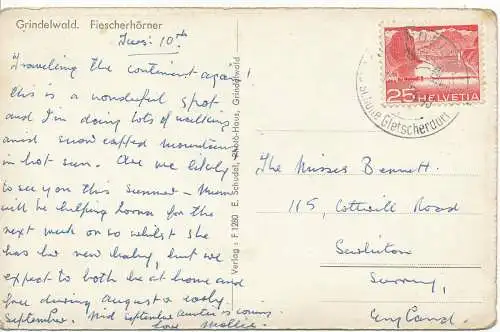 Grindelwald. Fiescherhörner
Tues: 10th
Travelling the continent again
this is a wonderful spot
and I'm doing lots of walking
amid snow capped mountains
in hot sun. Are we likely
to see you this summer - Mum
will be helping Lorna for the
next week or so whilst she
has her new baby, but we
expect to both be at home and
free during August & early
September. Mid September Auntie is coming
love Mollie.
Verlag: F 1280 E. Schudel, Grindelwald
25 HELVETIA
Gletscherdorf
The Misses Bennett.
115, Cotwill Road
Surbiton
Surrey,
England.